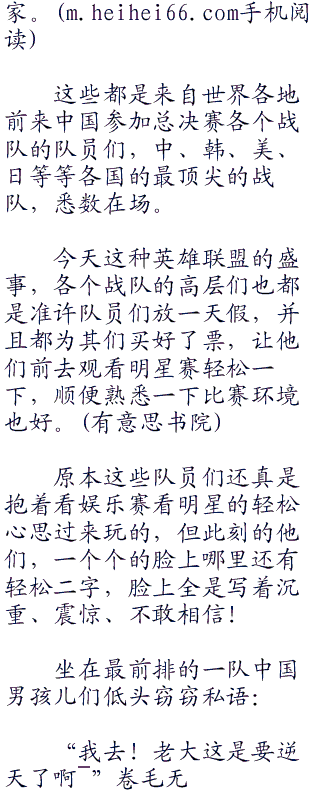 家。(m.heihei66.com手机阅
读)
这些都是来自世界各地
前来中国参加总决赛各个战
队的队员们，中、韩、美、
日等等各国的最顶尖的战
队，悉数在场。
今天这种英雄联盟的盛
事，各个战队的高层们也都
是准许队员们放一天假，并
且都为其们买好了票，让他
们前去观看明星赛轻松一
下，顺便熟悉一下比赛环境
也好。(有意思书院)
原本这些队员们还真是
抱着看娱乐赛看明星的轻松
心思过来玩的，但此刻的他
们，一个个的脸上哪里还有
轻松二字，脸上全是写着沉
重、震惊、不敢相信！
坐在最前排的一队中国
男孩儿们低头窃窃私语：
“我去！老大这是要逆
天了啊¯”卷毛无